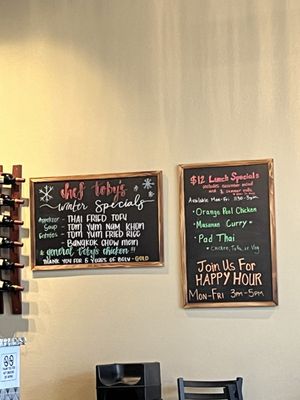 Chef Toby's
Winter Specials
Appetizer - THAI FRIED TOFU
Soup - TOM YUM NAM KHON
Entrées - TOM YUM FRIED RICE
- BANGKOK CHOW MEIN
& general Toby's chicken !!!
THANK YOU FOR 5 YEARS OF BOLN - GOLD
$12 Lunch Specials
Available Mon-Fri 11:30-3pm
• Orange Peel Chicken
• Massaman Curry
• Pad Thai
• Chicken, Tofu, or Veg
JOIN US FOR
HAPPY HOUR
MON-FRI 3PM-5PM